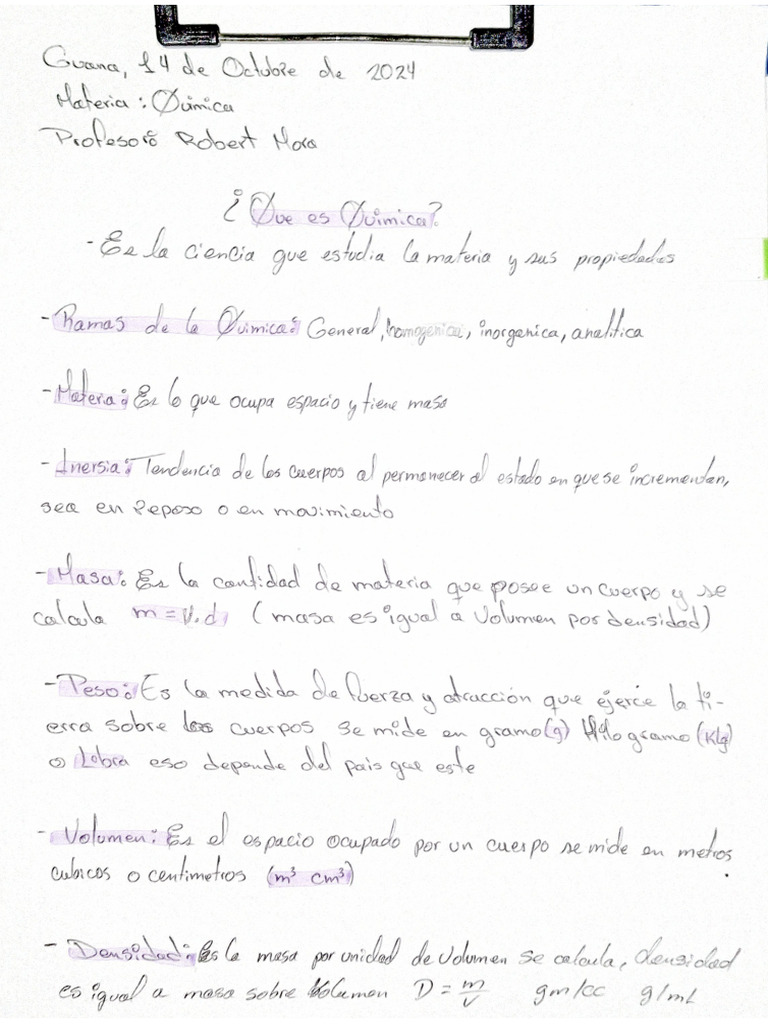 Guana, 14 de Octubre de 2024
Materia: Química
Profesor: Robert Mora
¿Que es Química?
- Es la ciencia que estudia la materia y sus propiedades
- Ramas de la Química: General, homogenica, inorganica, analitica
- Materia: Es lo que ocupa espacio y tiene masa
- Inersia: Tendencia de los cuerpos al permanecer al estado en que se incrementan,
sea en Reposo o en movimiento
- Masa: Es la cantidad de materia que posee un cuerpo y se
calcula m = V. d (masa es igual a Volumen por densidad)
- Peso: Es la medida de fuerza y atracción que ejerce la ti-
erra sobre los cuerpos se mide en gramo (g) Kilogramo (Klg)
o Libra eso depende del pais que este
- Volumen: Es el espacio ocupado por un cuerpo se mide en metros
cubicos o centimetros (m³ cm³)
- Densidad: Es la masa por unidad de Volumen se calcula, densidad
es igual a masa sobre Volumen D = m/v gm/cc g/mL